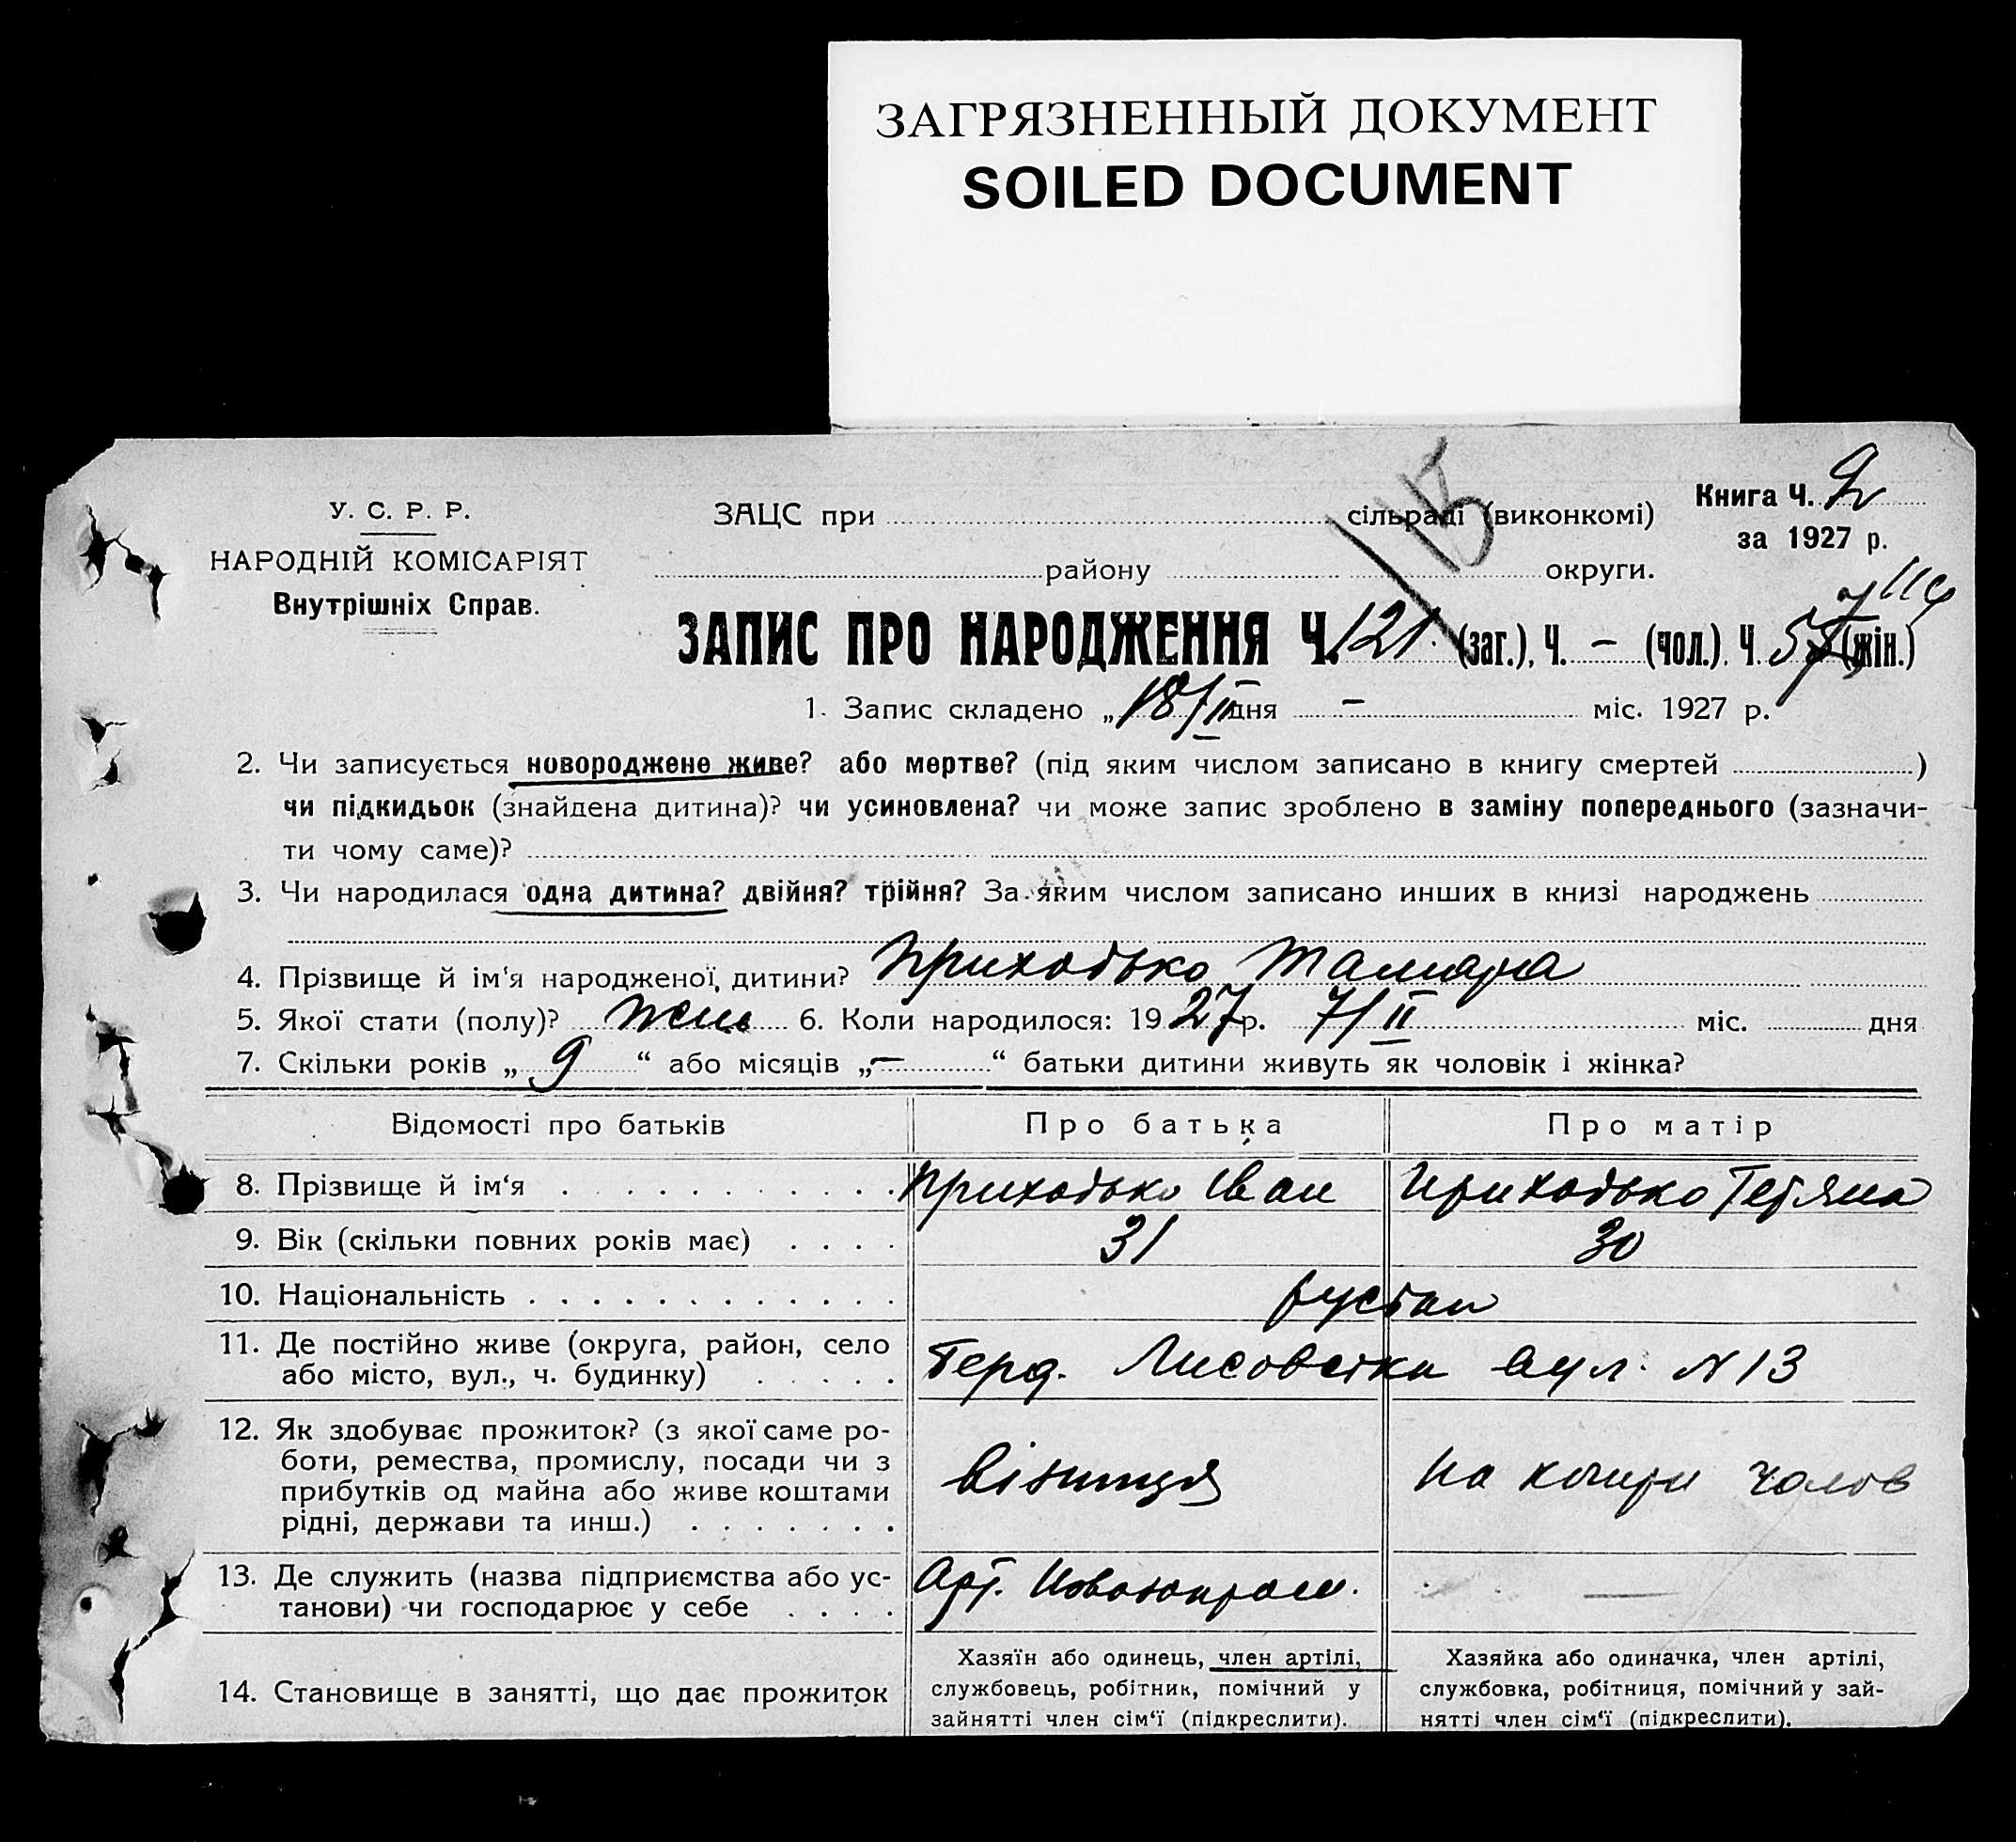 ЗАГРЯЗНЕННЫЙ ДОКУМЕНТ
SOILED DOCUMENT
У. С. Р. Р.
НАРОДНІЙ КОМІСАРІЯТ
Внутрішніх Справ.
ЗАЦС при сільраді (виконкомі)
району округи.
Книга Ч. 2
за 1927 р.
ЗАПИС ПРО НАРОДЖЕННЯ Ч. 121 (заг.), Ч. – (чол.). Ч. (жін.)
1. Запис складено „18/II дня – міс. 1927 р.
2. Чи записується новороджене живе? або мертве? (під яким числом записано в книгу смертей )
чи підкидьок (знайдена дитина)? чи усиновлена? чи може запис зроблено в заміну попереднього (зазначи-
ти чому саме)?
3. Чи народилася одна дитина? двійня? трійня? За яким числом записано инших в книзі народжень
4. Прізвище й ім'я народженої дитини? Приходько Тамара
5. Якої стати (полу)? жень 6. Коли народилося: 1927 р. 7/II міс. дня
7. Скільки років „ 9 “ або місяців „ – “ батьки дитини живуть як чоловік і жінка?
Відомості про батьків Про батька Про матір
8. Прізвище й ім'я Приходько Іван Приходько Тетяна
9. Вік (скільки повних років має) 31 30
10. Національність
11. Де постійно живе (округа, район, село
або місто, вул., ч. будинку) Лисоветки вул. N 13
12. Як здобуває прожиток? (з якої саме ро-
боти, ремества, промислу, посади чи з
прибутків од майна або живе коштами
рідні, держави та инш.) на чолов
13. Де служить (назва підприємства або ус-
танови) чи господарює у себе Арт. —
14. Становище в занятті, що дає прожиток
Хазяїн або одинець, член артілі,
службовець, робітник, помічний у
зайнятті член сім'ї (підкреслити).
Хазяйка або одиначка, член артілі,
службовка, робітниця, помічний у зай-
нятті член сім'ї (підкреслити).